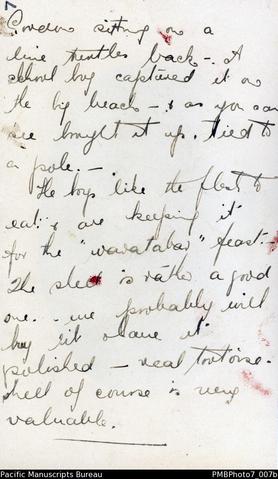 7
Condon sitting on a
live turtles back -. A
school boy captured it on
the big beach - & as you can
see brought it up, tied to
a pole. -
The boys like the flesh to
eat & are keeping it
for the "wavatabar" feast. -
The shell is rather a good
one. - we probably will
buy it & have it
polished - real tortoise-
shell of course is very
valuable.
Pacific Manuscripts Bureau
PMBPhoto7_007b